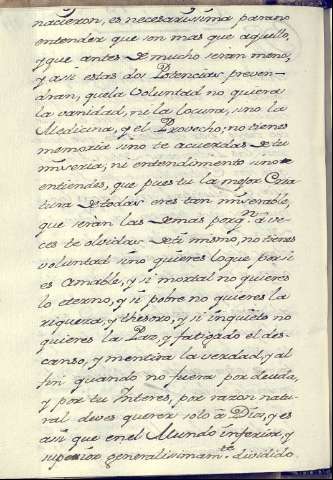 nacieron, es necesarissima para no
entender que son mas que aquello,
y que antes de mucho seran menos,
y asi estas dos Potencias preven-
dran, que la Voluntad no quiera
la vanidad, ni la locura, sino la
Medicina, y el Provecho; no tienes
memoria sino te acuerdas de tu
miseria; ni entendimiento sino
entiendes, que pues tu la mejor Cria
tura de todas eres tan miserable,
que seran las demas porq.n a ve-
ces te olvidas de ti mismo, no tienes
voluntad sino quieres lo que por si
es Amable, y si mortal no quieres
lo eterno, y si pobre no quieres la
riqueza, y thesoro, y si inquieto no
quieres la Paz, y fatigado el des-
canso, y mentira la verdad, y al
fin quando no fuera por deuda,
y por tu Interes, por razon natu-
ral deves querer solo a Dios, y es
asi que en el Mundo inferior, y
superior generalissimam.te dividido